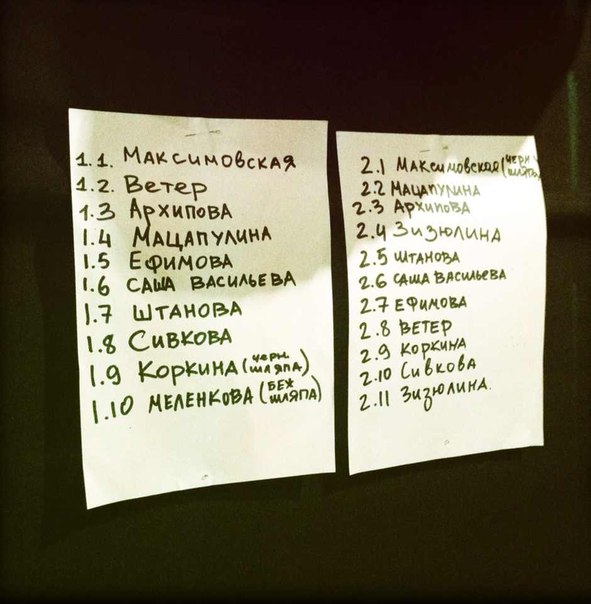 1.1. Максимовская
1.2. Ветер
1.3 Архипова
1.4 Мацапулина
1.5 Ефимова
1.6 Саша Васильева
1.7 Штанова
1.8 Сивкова
1.9 Коркина (черн. шляпа)
1.10 Меленкова (беж шляпа)
2.1 Максимовская (черн шляпа)
2.2 Мацапулина
2.3 Архипова
2.4 Зизюлина
2.5 Штанова
2.6 Саша Васильева
2.7 Ефимова
2.8 Ветер
2.9 Коркина
2.10 Сивкова
2.11 Зизюлина.